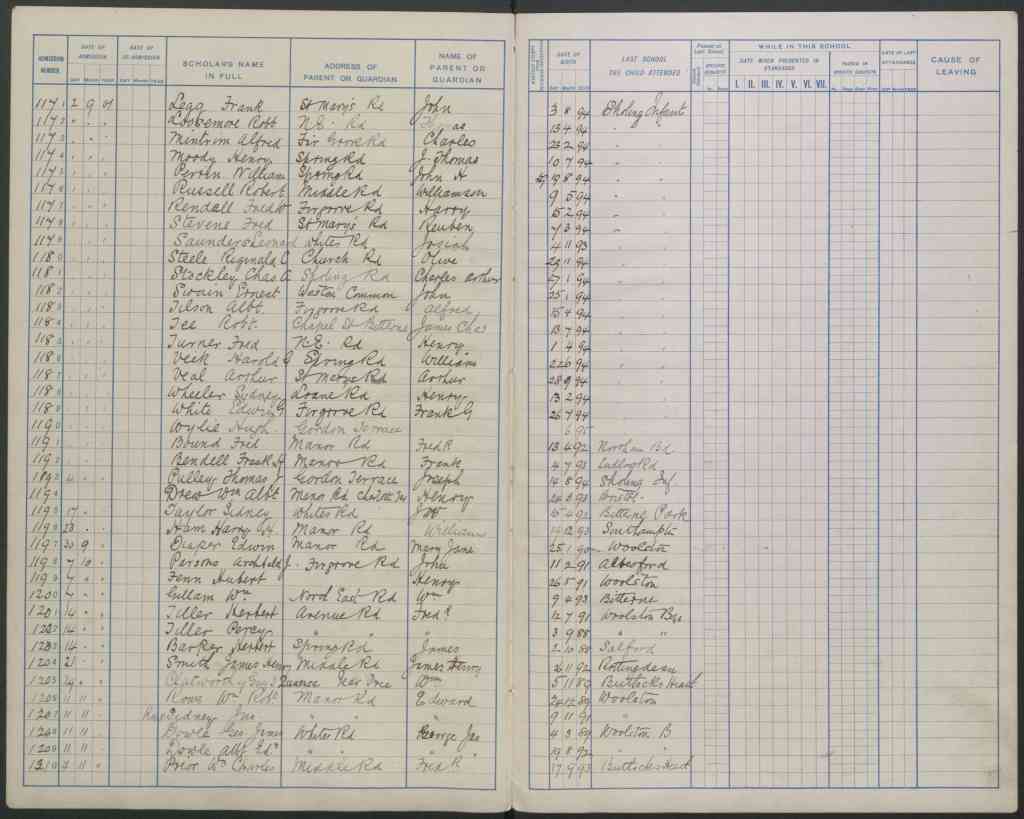 ADMISSION NUMBER. DATE OF ADMISSION DATE OF RE-ADMISSION SCHOLAR'S NAME IN FULL ADDRESS OF PARENT OR GUARDIAN NAME OF PARENT OR GUARDIAN DATE OF BIRTH LAST SCHOOL THE CHILD ATTENDED WHILE IN THIS SCHOOL DATE WHEN PRESENTED IN STANDARDS I. II. III. IV. V. VI. VII. DATE OF LAST ATTENDANCE CAUSE OF LEAVING
1171 2 9 01 Legg Frank St Mary's Rd John 3 8 94 Sholing Infant
1172 " " " Loosemore Robt N.E. Rd 13 4 94 " "
1173 " " " Mintrom Alfred Fir Grove Rd Charles 23 2 94 " "
1174 " " " Moody Henry Spring Rd J. Thomas 10 7 94 " "
1175 " " " Perrin William Spring Rd John H 19 8 94 " "
1176 " " " Russell Robert Middle Rd Williamson 9 5 94 " "
1177 " " " Rendall Fredk Firgrove Rd Harry 15 2 94 " "
1178 " " " Stevens Fred St Mary's Rd Reuben 7 3 94 " "
1179 " " " Saunders Leonard Whites Rd Josiah 4 11 93
1180 " " " Steele Reginald C Church Rd Olive 29 11 94
1181 " " " Stockley Chas A Spring Rd Charles Arthur 27 1 94
1182 " " " Swain Ernest Weston Common John 25 1 94
1183 " " " Tilson Albt. Firgrove Rd Alfred 15 4 94
1184 " " " Tee Robt. Chapel St Bitterne James Chas 13 7 94
1185 " " " Turner Fred N.E. Rd Henry 1 4 94
1186 " " " Veek Harold G Spring Rd William 22 6 94
1187 " " " Veal Arthur St Marys Rd Arthur 28 9 94
1188 " " " Wheeler Sydney Deane Rd Henry 13 2 94
1189 " " " White Edwin G Firgrove Rd Frank G 26 7 94
1190 Wylie Hugh Gordon Terrace 6 95
1191 Bound Fred Manor Rd Fredk 13 4 92 Northam Bd
1192 Bendell Frank H Manor Rd Frank 4 7 93 Ludlow Rd
1893 4 Pulley Thomas J Gordon Terrace Joseph 14 8 94 Sholing Inf.
1194 " Drew Wm Albt Manor Rd Charlotte Henry 24 3 93 Bristol
1195 17 " Taylor Sidney Whites Rd Jas 15 4 92 Bitterne Park
1196 23 " Ham Harry W. Manor Rd William 14 12 93 Southampton
1197 30 9 " Draper Edwin Manor Rd Mary Jane 25 1 90 Woolston
1198 7 10 " Persons Archibald J. Firgrove Rd John 11 2 91 Alresford
1199 7 " " Fenn Hubert Henry 26 5 91 Woolston
1200 7 " " Gillam Wm North East Rd Wm 9 4 93 Bitterne
1201 14 " " Tiller Herbert Avenue Rd Fredk 12 7 91 Woolston Boys
1202 14 " " Tiller Percy " " " 3 9 88 " "
1203 14 " " Barker Herbert Spring Rd James 2 10 88 Salford
1204 21 " " Smith James Henry Middle Rd James Henry 26 11 92 Rottingdean
1205 29 " " Chatworthy near Tree Wm 5 11 89 Buttocks Heath
1206 11 11 " Rowe Wm Robt. Manor Rd Edward 24 12 89 Woolston
1207 11 11 " Rowe Sidney Jas " " " 9 11 91 "
1208 11 11 " Dowle Geo James White Rd George Jas 4 3 89 Woolston B
1209 11 11 " Dowle Albt Edd " " " 19 8 92 " "
1210 11 " Prior Wm Charles Middle Rd Fredk 17 9 93 Buttocks Heath